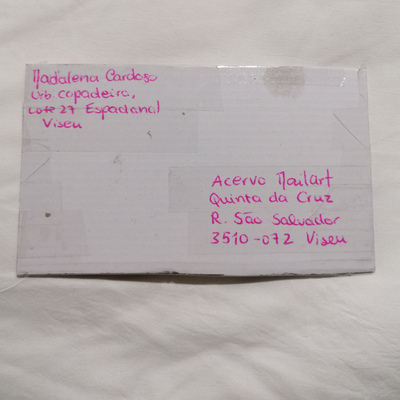 Madalena Cardoso
Urb. Capadeira,
Lote 27 Espadanal
Viseu
Acervo Mailart
Quinta da Cruz
R. São Salvador
3510-072 Viseu